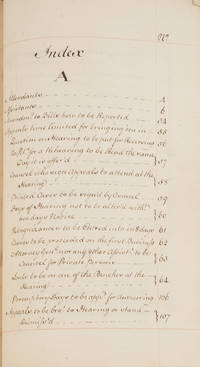 No.
Index
A
Attendants 4
Assistants 6
Amendmts. to Bills how to be Reported 24
Appeals time limited for bringing em in 38
Question on Hearing to be put for Reversing 56
for a Rehearing to be Read the same
Day it is offer'd 57
Counsel who sign Appeals to attend at the
Hearing 58
Printed Cases to be signed by Counsel 59
Days of Hearing not to be alter'd without
two days Notice 60
Recognizance to be Entred into in 8 days 61
Causes to be proceeded on the first Business 62
Attorney Genl. nor any other Assistt. to be
Counsel for Private Persons 60
Lords to be on one of the Benches at the
Hearing 64
Peremptory Days to be appd. for Answering 106
Appeals to be brot. to Hearing or stand
Dismiss'd 107